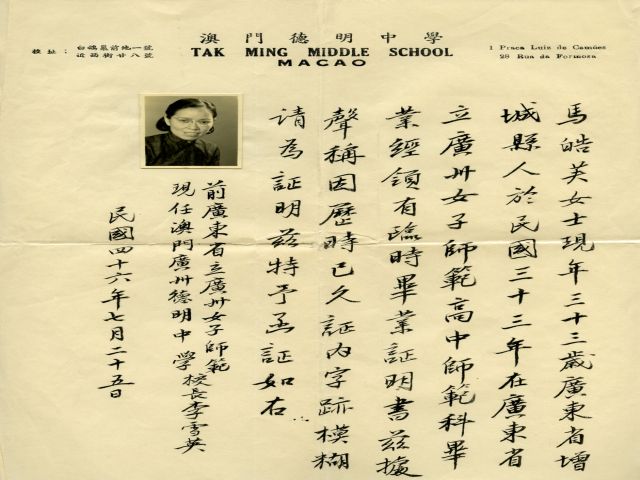 澳門德明中學
TAK MING MIDDLE SCHOOL
MACAO
校址：白鴿巢前地一號
近西街廿八號
1 Praca Luiz de Camões
28 Rua da Formosa
馬皓芙女士現年三十三歲廣東省增
城縣人於民國三十三年在廣東省
立廣州女子師範高中師範科畢
業經領有臨時畢業証明書茲據
聲稱因歷時已久証內字跡模糊
請為証明茲特予函証如右
前廣東省立廣州女子師範
現任澳門廣州德明中學校長李雪英
民國四十六年七月二十五日